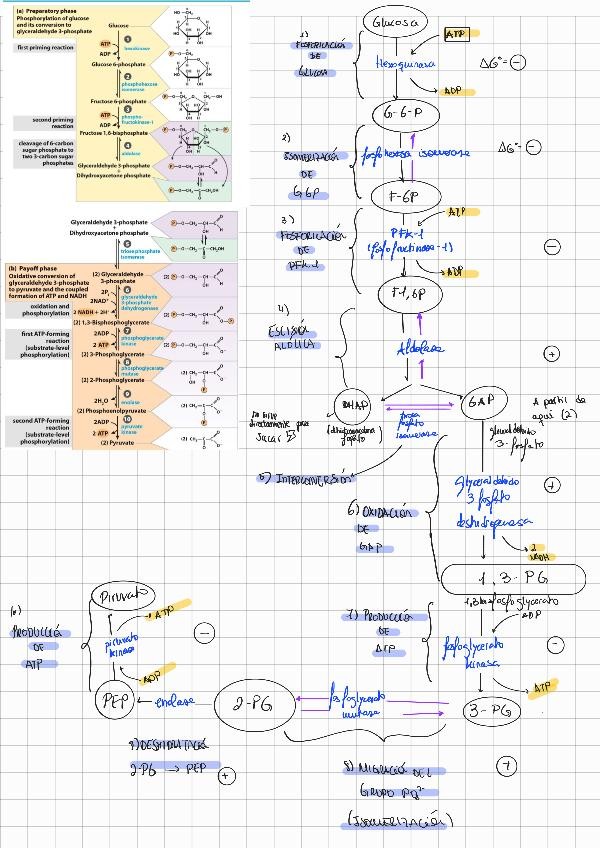 (a) Preparatory phase
Phosphorylation of glucose
and its conversion to
glyceraldehyde 3-phosphate
first priming reaction
second priming
reaction
cleavage of 6-carbon
sugar phosphate to
two 3-carbon sugar
phosphates
Glucose
ATP
ADP
1
hexokinase
Glucose 6-phosphate
2
phosphohexose
isomerase
Fructose 6-phosphate
ATP
ADP
3
phospho-
fructokinase-1
Fructose 1,6-bisphosphate
4
aldolase
Glyceraldehyde 3-phosphate
+
Dihydroxyacetone phosphate
Glyceraldehyde 3-phosphate
+
Dihydroxyacetone phosphate
5
triose phosphate
isomerase
(b) Payoff phase
Oxidative conversion of
glyceraldehyde 3-phosphate
to pyruvate and the coupled
formation of ATP and NADH
oxidation and
phosphorylation
first ATP-forming
reaction
(substrate-level
phosphorylation)
second ATP-forming
reaction
(substrate-level
phosphorylation)
(2) Glyceraldehyde
3-phosphate
2Pi
2NAD+
2 NADH + 2H+
6
glyceraldehyde
3-phosphate
dehydrogenase
(2) 1,3-Bisphosphoglycerate
2ADP
2 ATP
7
phosphoglycerate
kinase
(2) 3-Phosphoglycerate
8
phosphoglycerate
mutase
(2) 2-Phosphoglycerate
2H2O
9
enolase
(2) Phosphoenolpyruvate
2ADP
2 ATP
10
pyruvate
kinase
(2) Pyruvate
Glucosa
1)
FOSFORILACIÓN
DE
GLUCOSA
Hexoquinasa
ATP
ADP
ΔG°= -
G-6-P
2)
ISOMERIZACIÓN
DE
G6P
fosfohexosa isomerasa
ΔG°= -
F-6P
3)
FOSFORILACIÓN
DE
PFK-1
PFK-1
(fosfofructinasa-1)
ATP
ADP
-
F-1,6P
4)
ESCISIÓN
ALDÓLICA
Aldolasa
+
DHAP
triosa
fosfato
isomerasa
GAP
A partir de
aquí (2)
gliceraldehído
3-fosfato
5) INTERCONVERSIÓN
6) OXIDACIÓN
DE
GAP
gliceraldehido
3 fosfato
deshidrogenasa
+
2
NADH
1,3-PG
1,3 bisfosfoglicerato
7) PRODUCCIÓN
DE
ATP
ADP
fosfoglicerato
kinasa
-
ATP
3-PG
fosfoglicerato
mutasa
2-PG
8) MIGRACIÓ DEL
GRUPO PO3²⁻
(ISOMERIZACIÓN)
+
enolasa
9) DESHIDRATACIÓ
2-PG → PEP
+
PEP
PRODUCCIÓ
DE
ATP
ADP
piruvato
kinasa
ATP
-
Piruvato